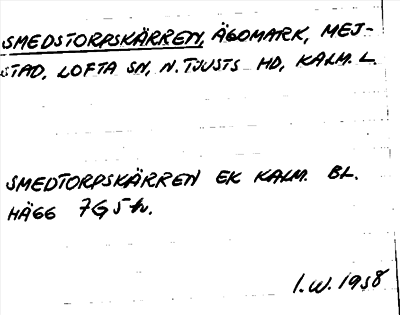 SMEDSTORPSKÄRREN, ÄGOMARK, MEJ-
STAD, LOFTA SN, N. TJUSTS HD, KALM. L.
SMEDTORPSKÄRREN EK KALM. BL.
HÄGG 7G5h.
I.W. 1958